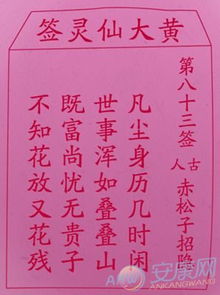 黄大仙灵签
第八十三签
古人 赤松子招隐
凡尘身历几时闲
世事浑如叠叠山
既富尚忧无贵子
不知花放又花残
安康网